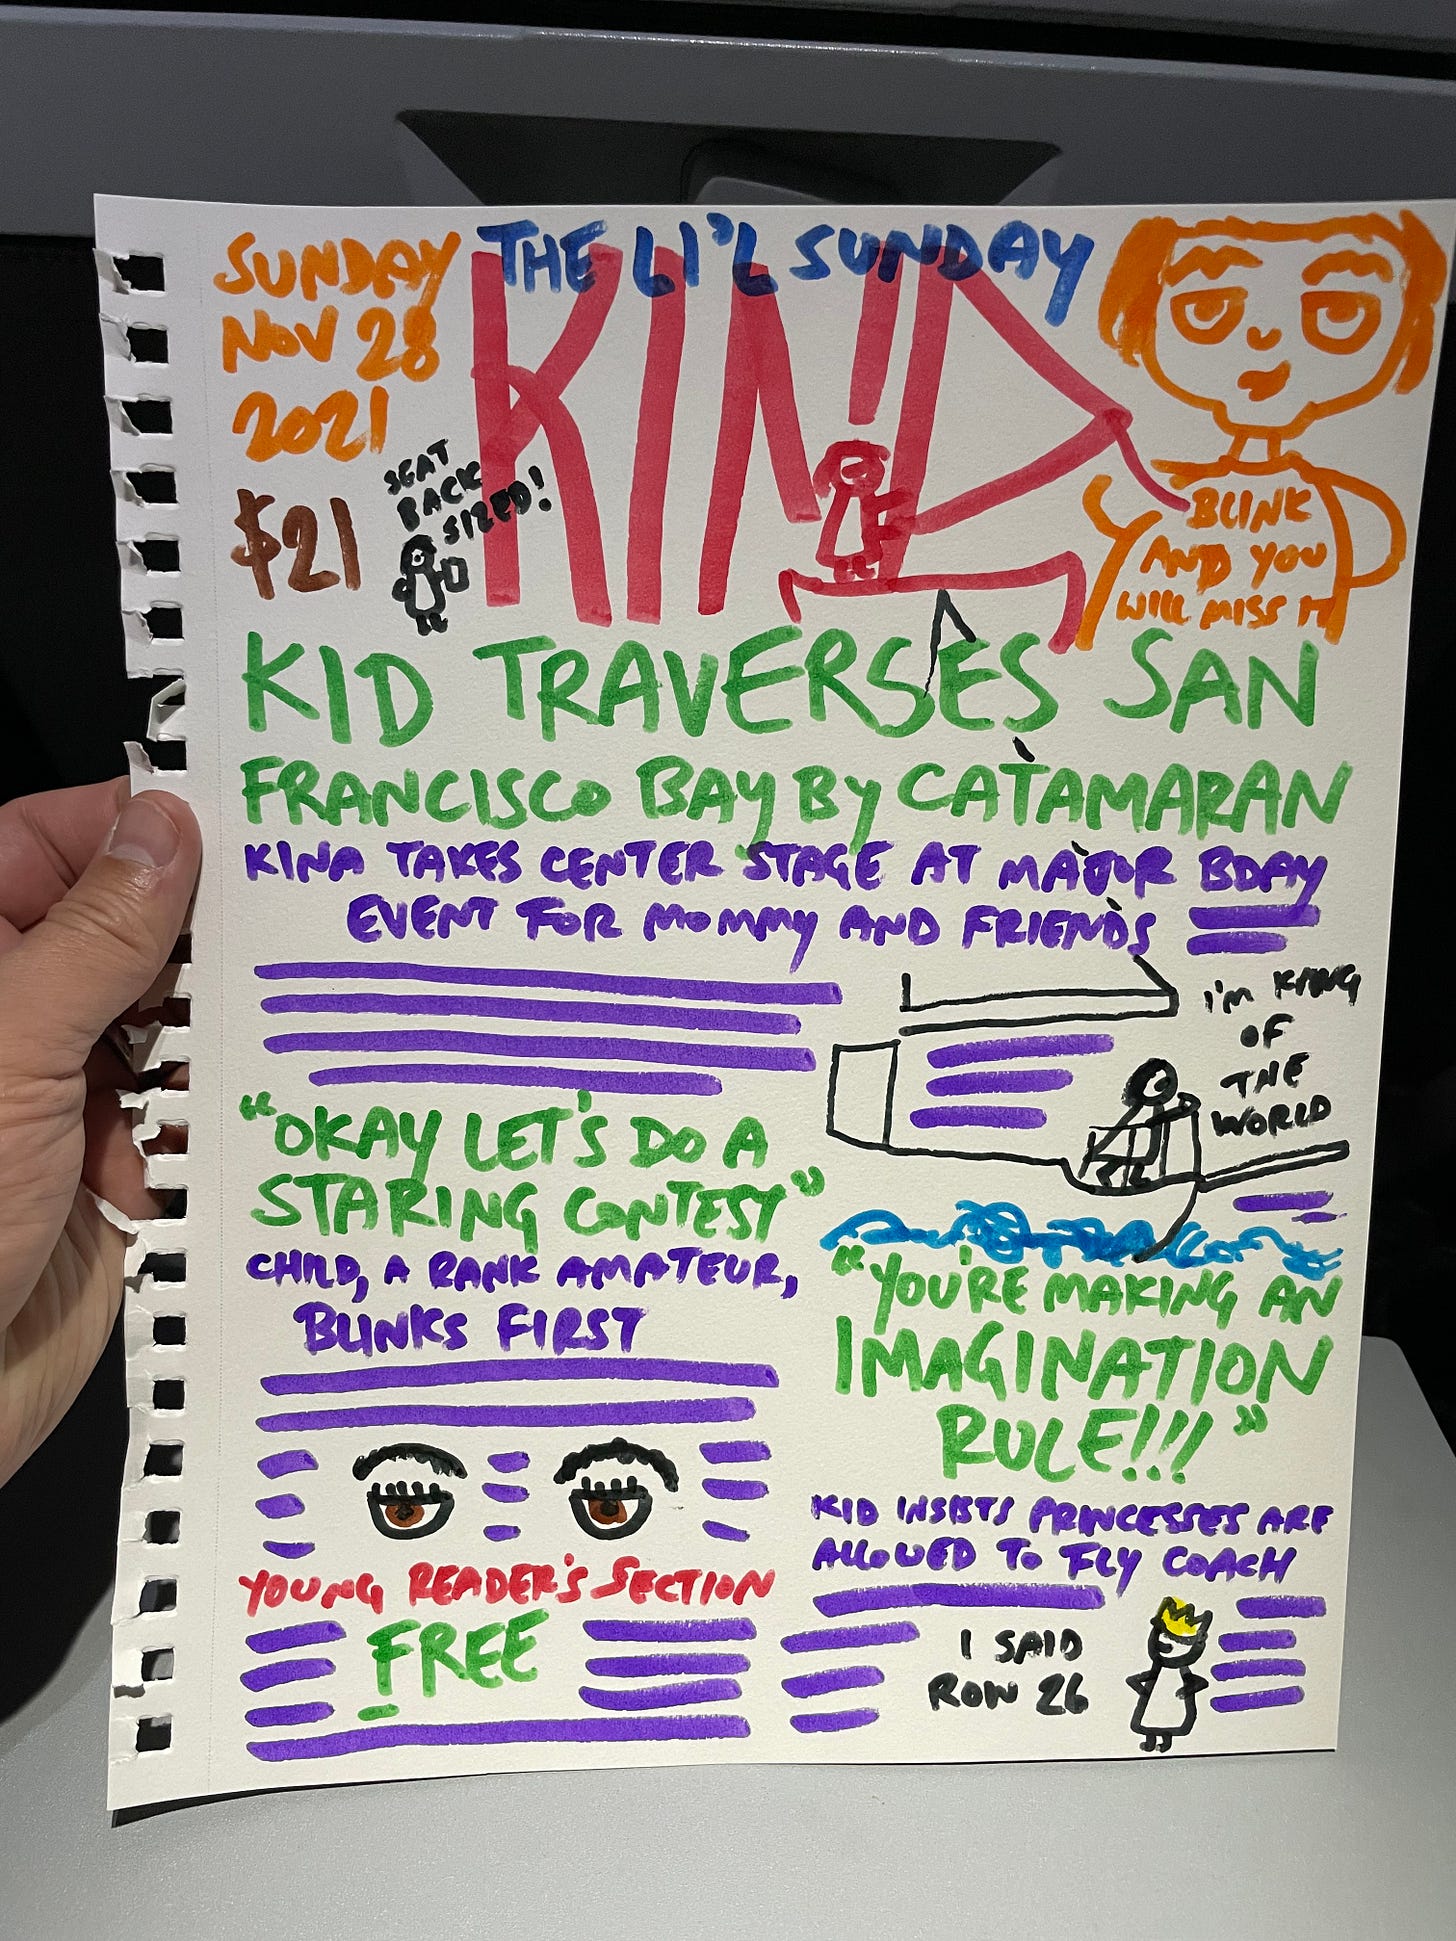 SUNDAY
NOV 28
2021
$21
SEAT
BACK
SIZED!
THE LI'L SUNDAY
KIND
BLINK
AND YOU
WILL MISS IT
KID TRAVERSES SAN
FRANCISCO BAY BY CATAMARAN
KINA TAKES CENTER STAGE AT MAJOR BDAY
EVENT FOR MOMMY AND FRIENDS
I'M KING
OF
THE
WORLD
"OKAY LET'S DO A
STARING CONTEST"
CHILD, A RANK AMATEUR,
BLINKS FIRST
YOUNG READER'S SECTION
FREE
"YOU'RE MAKING AN
IMAGINATION
RULE!!!"
KID INSISTS PRINCESSES ARE
ALLOWED TO FLY COACH
I SAID
ROW 26